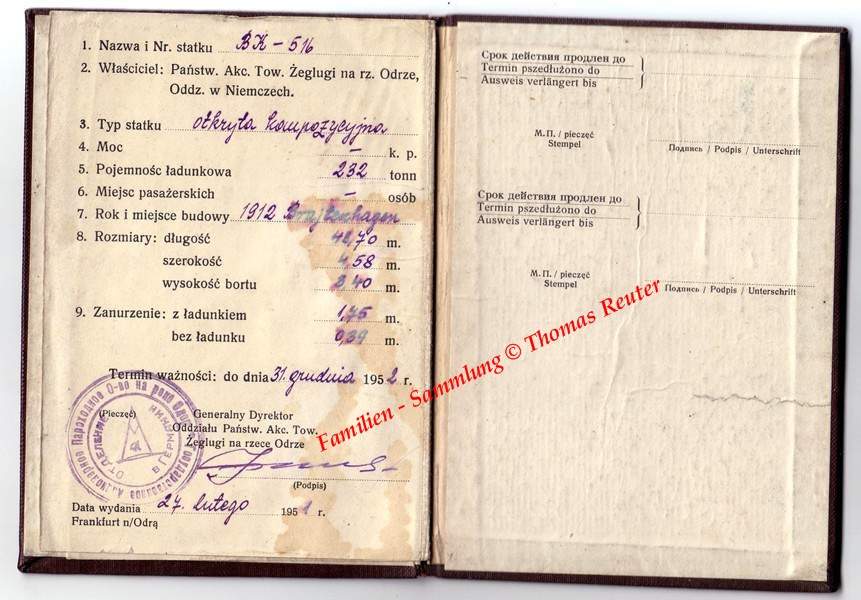 1. Nazwa i Nr. statku BK – 516
2. Właściciel: Państw. Akc. Tow. Żeglugi na rz. Odrze,
Oddz. w Niemczech.
3. Typ statku otkryta kompozycyjna
4. Moc – k. p.
5. Pojemnośc ładunkowa 232 tonn
6. Miejsc pasażerskich – osób
7. Rok i miejsce budowy 1912
8. Rozmiary: długość 42,70 m.
szerokość 4,58 m.
wysokość bortu 2 40 m.
9. Zanurzenie: z ładunkiem 1,75 m.
bez ładunku 0,39 m.
Termin ważności: do dnia 31. grudnia 1952 r.
(Pieczęć) Generalny Dyrektor
Oddziału Państw. Akc. Tow.
Żeglugi na rzece Odrze
(Podpis)
Data wydania 27. lutego 1951 r.
Frankfurt n/Odrą
ОТДЕЛЕНИЕ В ГЕРМАНИИ
Срок действия продлен до
Termin pszedłużono do
Ausweis verlängert bis
М. П. / pieczęć
Stempel
Подпись / Podpis / Unterschrift
Срок действия продлен до
Termin pszedłużono do
Ausweis verlängert bis
М. П. / pieczęć
Stempel
Подпись / Podpis / Unterschrift
Familien - Sammlung © Thomas Reuter